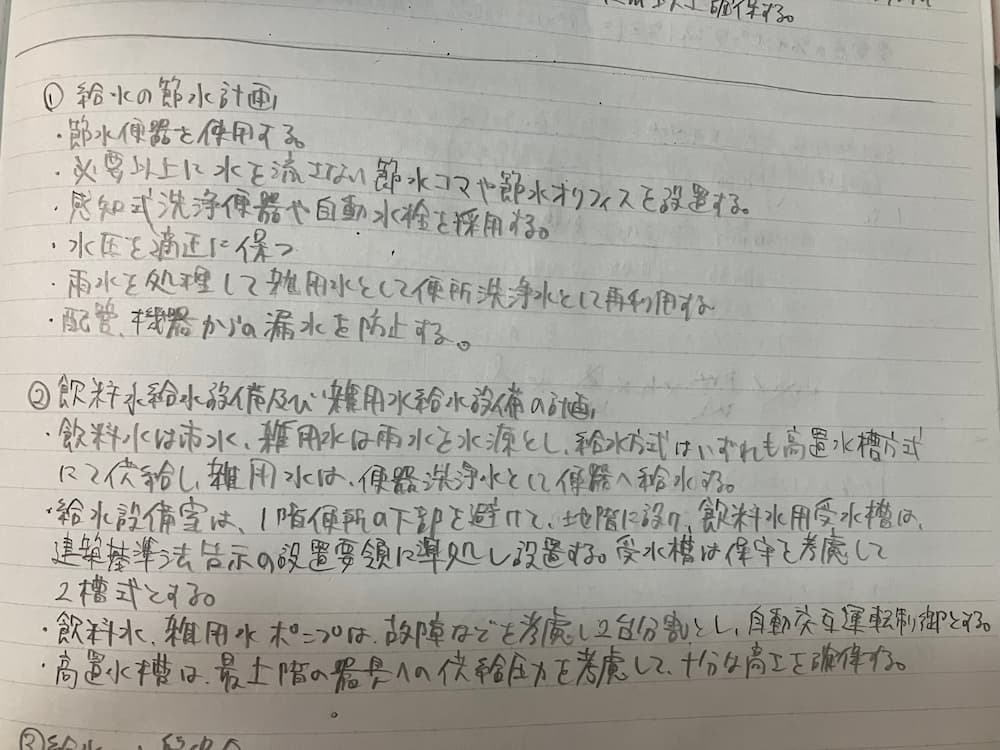 確保する。
① 給水の節水計画
・節水便器を使用する。
・必要以上に水を流さない節水コマや節水オリフィスを設置する。
・感知式洗浄便器や自動水栓を採用する。
・水圧を適正に保つ
・雨水を処理して雑用水として便所洗浄水として再利用する
・配管、機器からの漏水を防止する。
② 飲料水給水設備及び雑用水給水設備の計画
・飲料水は市水、雑用水は雨水を水源とし、給水方式はいずれも高置水槽方式
にて供給し、雑用水は、便器洗浄水として便器へ給水する。
・給水設備室は、1階便所の下部を避けて、地階に設け、飲料水用受水槽は、
建築基準法告示の設置要領に準処し設置する。受水槽は保守を考慮して
2槽式とする。
・飲料水、雑用水ポンプは、故障などを考慮し2台分割とし、自動交互運転制御とする
・高置水槽は、最上階の器具への供給圧力を考慮して、十分な高さを確保する。
③給水